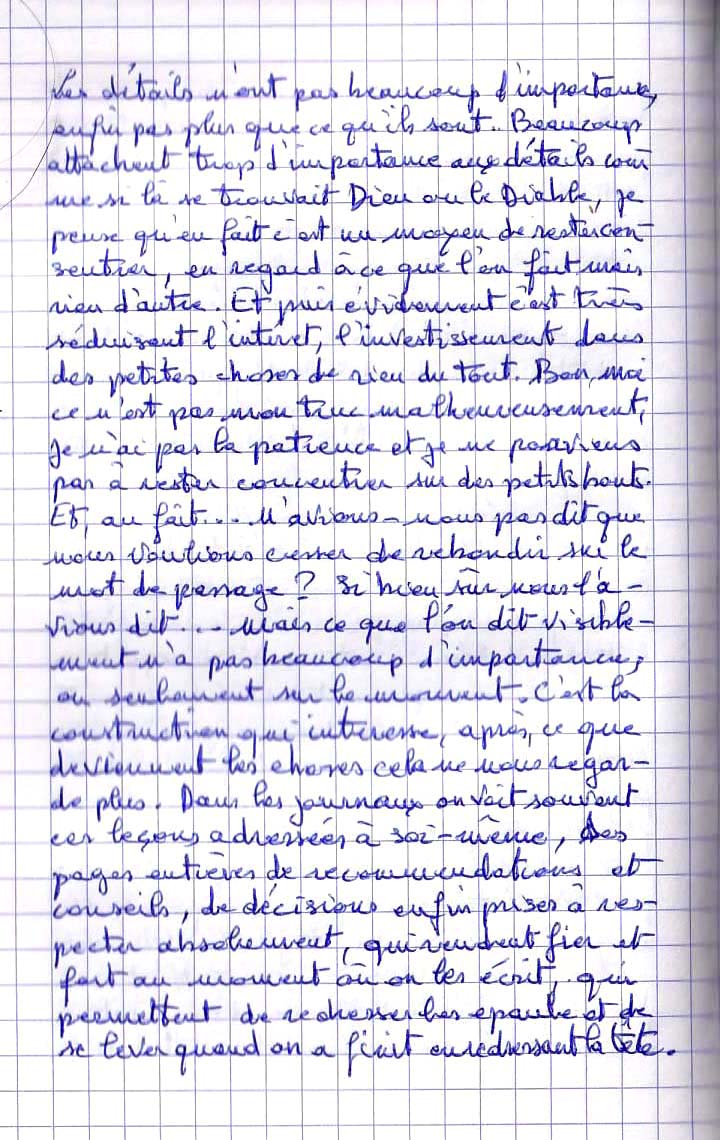 Les détails n'ont pas beaucoup d'importance,
enfin pas plus que ce qu'ils sont. Beaucoup
attachent trop d'importance aux détails com
me si là se trouvait Dieu ou le Diable, je
pense qu'en fait c'est un moyen de rester con-
sentrer, en regard à ce que l'on fait mais
rien d'autre. Et puis évidemment c'est très
séduisant l'intéret, l'investissement dans
des petites choses de rien du tout. Bon, moi
ce n'est pas mon truc malheureusement,
Je n'ai pas la patience et je ne parviens
pas à rester concentrer sur des petits bouts.
Et, au fait... N'avions-nous pas dit que
nous voulions cesser de rebondir sur le
mot de passage ? Si bien sûr nous l'a-
vions dit... Mais ce que l'on dit visible-
ment n'a pas beaucoup d'importance,
ou seulement sur le moment. C'est la
construction qui intéresse, après, ce que
deviennent les choses cela ne nous regar-
de plus. Dans les journaux on voit souvent
ces leçons adressées à soi-même, des
pages entières de recommendations et
conseils, de décisions enfin prises à res-
pecter absolument, qui rendent fier et
fort au moment où on les écrit, qui
permettent de redresser les epaule et de
se lever quand on a finit en redressant la tête.